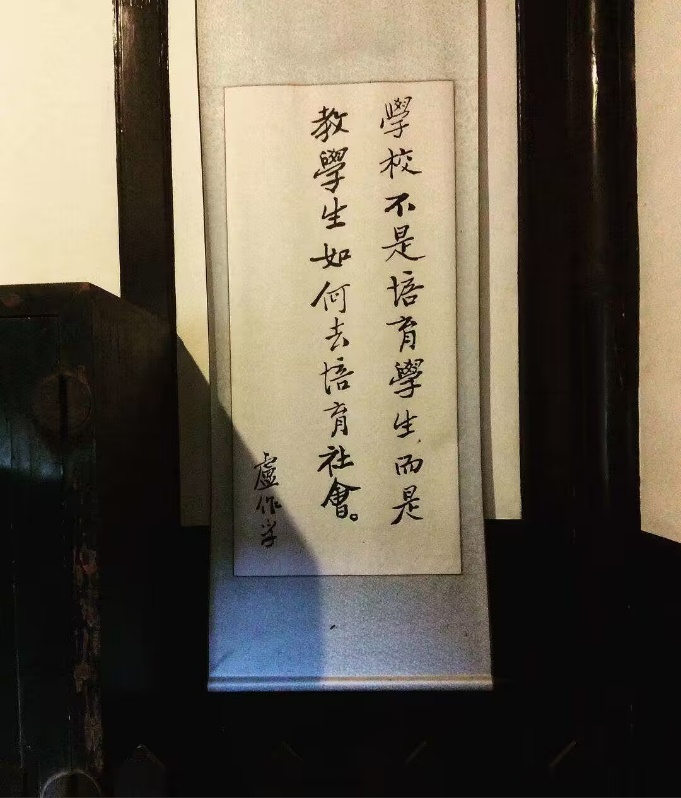 學校不是培育學生,而是
教學生如何去培育社會。
盧作孚